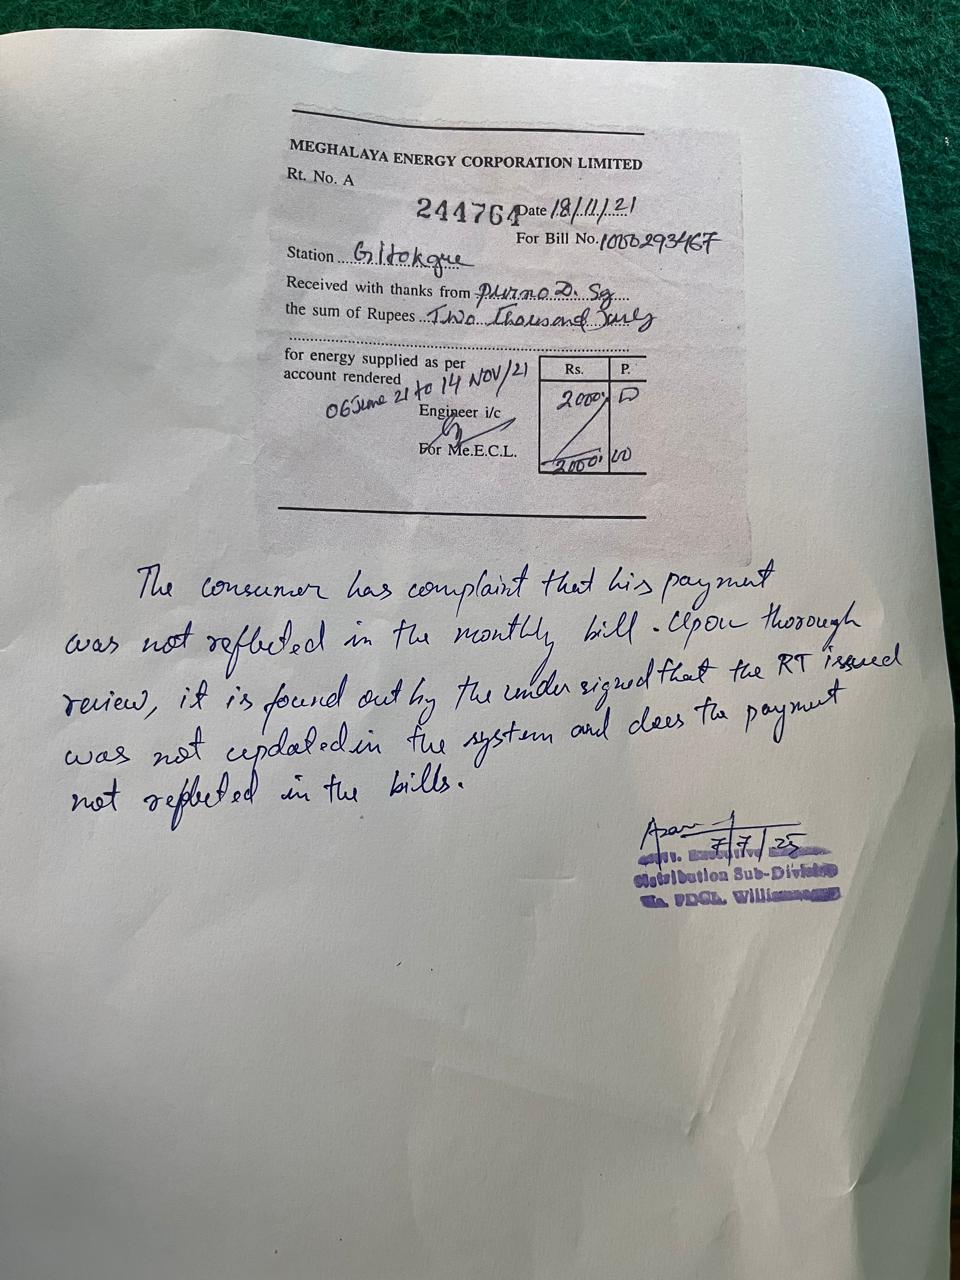 MEGHALAYA ENERGY CORPORATION LIMITED
Rt. No. A
244764 Date 18/11/21
For Bill No. 1000293467
Station Gitokgre
Received with thanks from Purno D. Sg
the sum of Rupees Two Thousand only
for energy supplied as per
account rendered
06 June 21 to 14 NOV/21
Engineer i/c
For Me.E.C.L.
Rs. P.
2000
2000 00
The consumer has complaint that his payment
was not reflected in the monthly bill. Upon thorough
review, it is found out by the undersigned that the RT issued
was not updated in the system and does the payment
not reflected in the bills.
7/7/25
Distribution Sub-Division